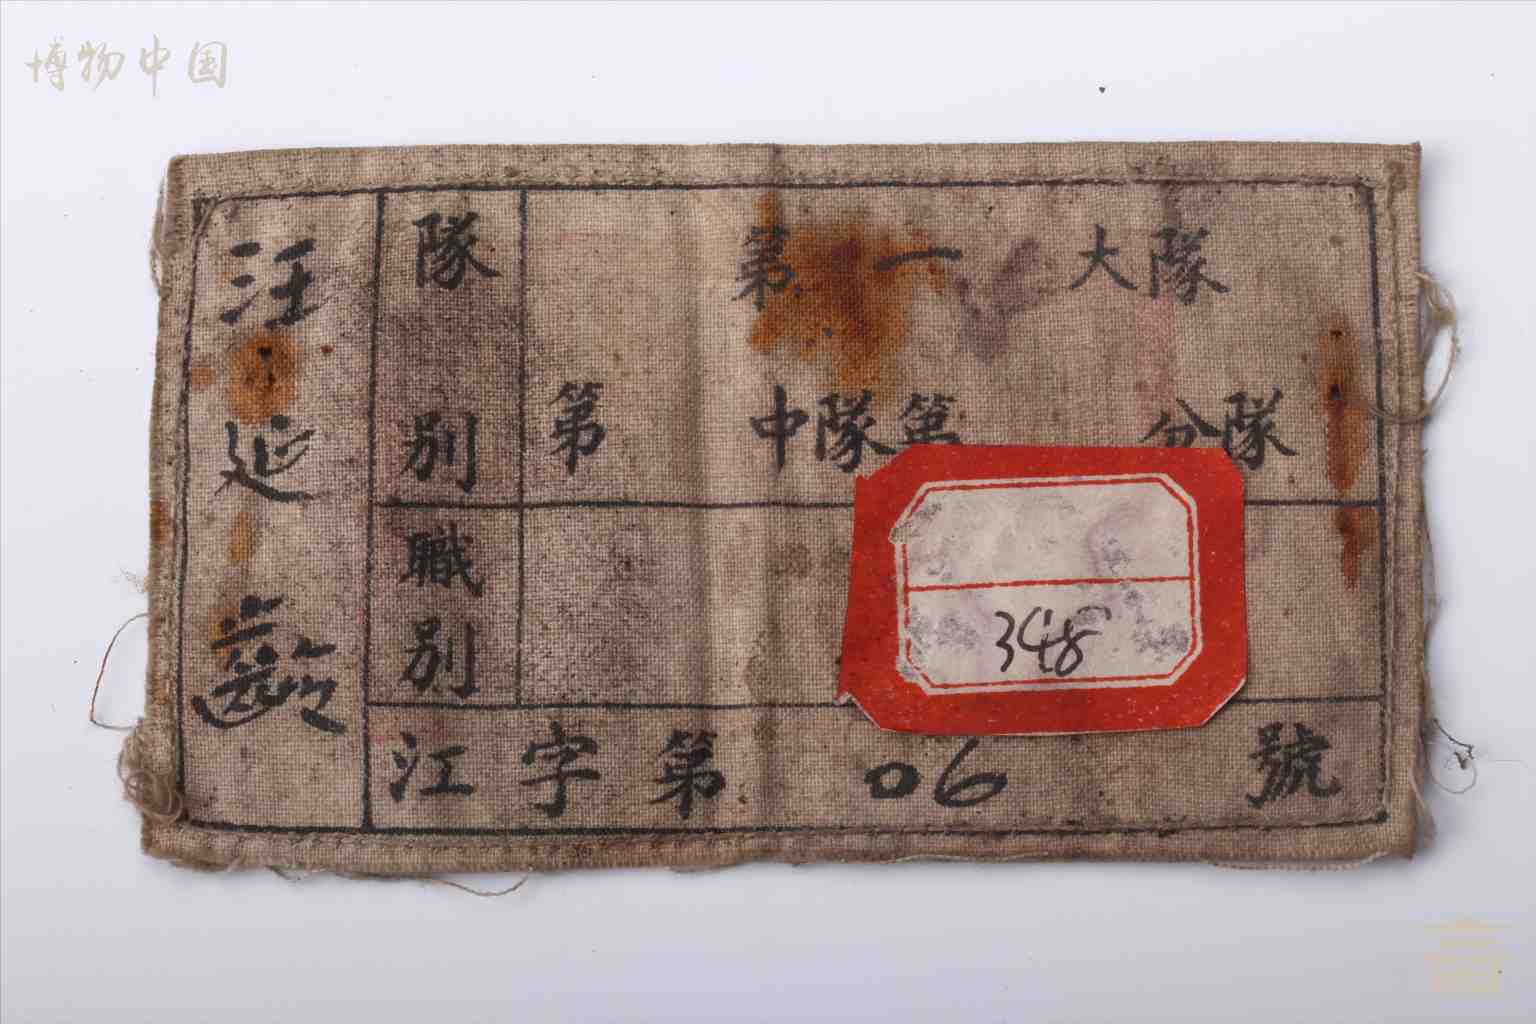 博物中国
汪延齡
隊別
第一大隊
第 中隊第 分隊
職別
348
江字第 06 號